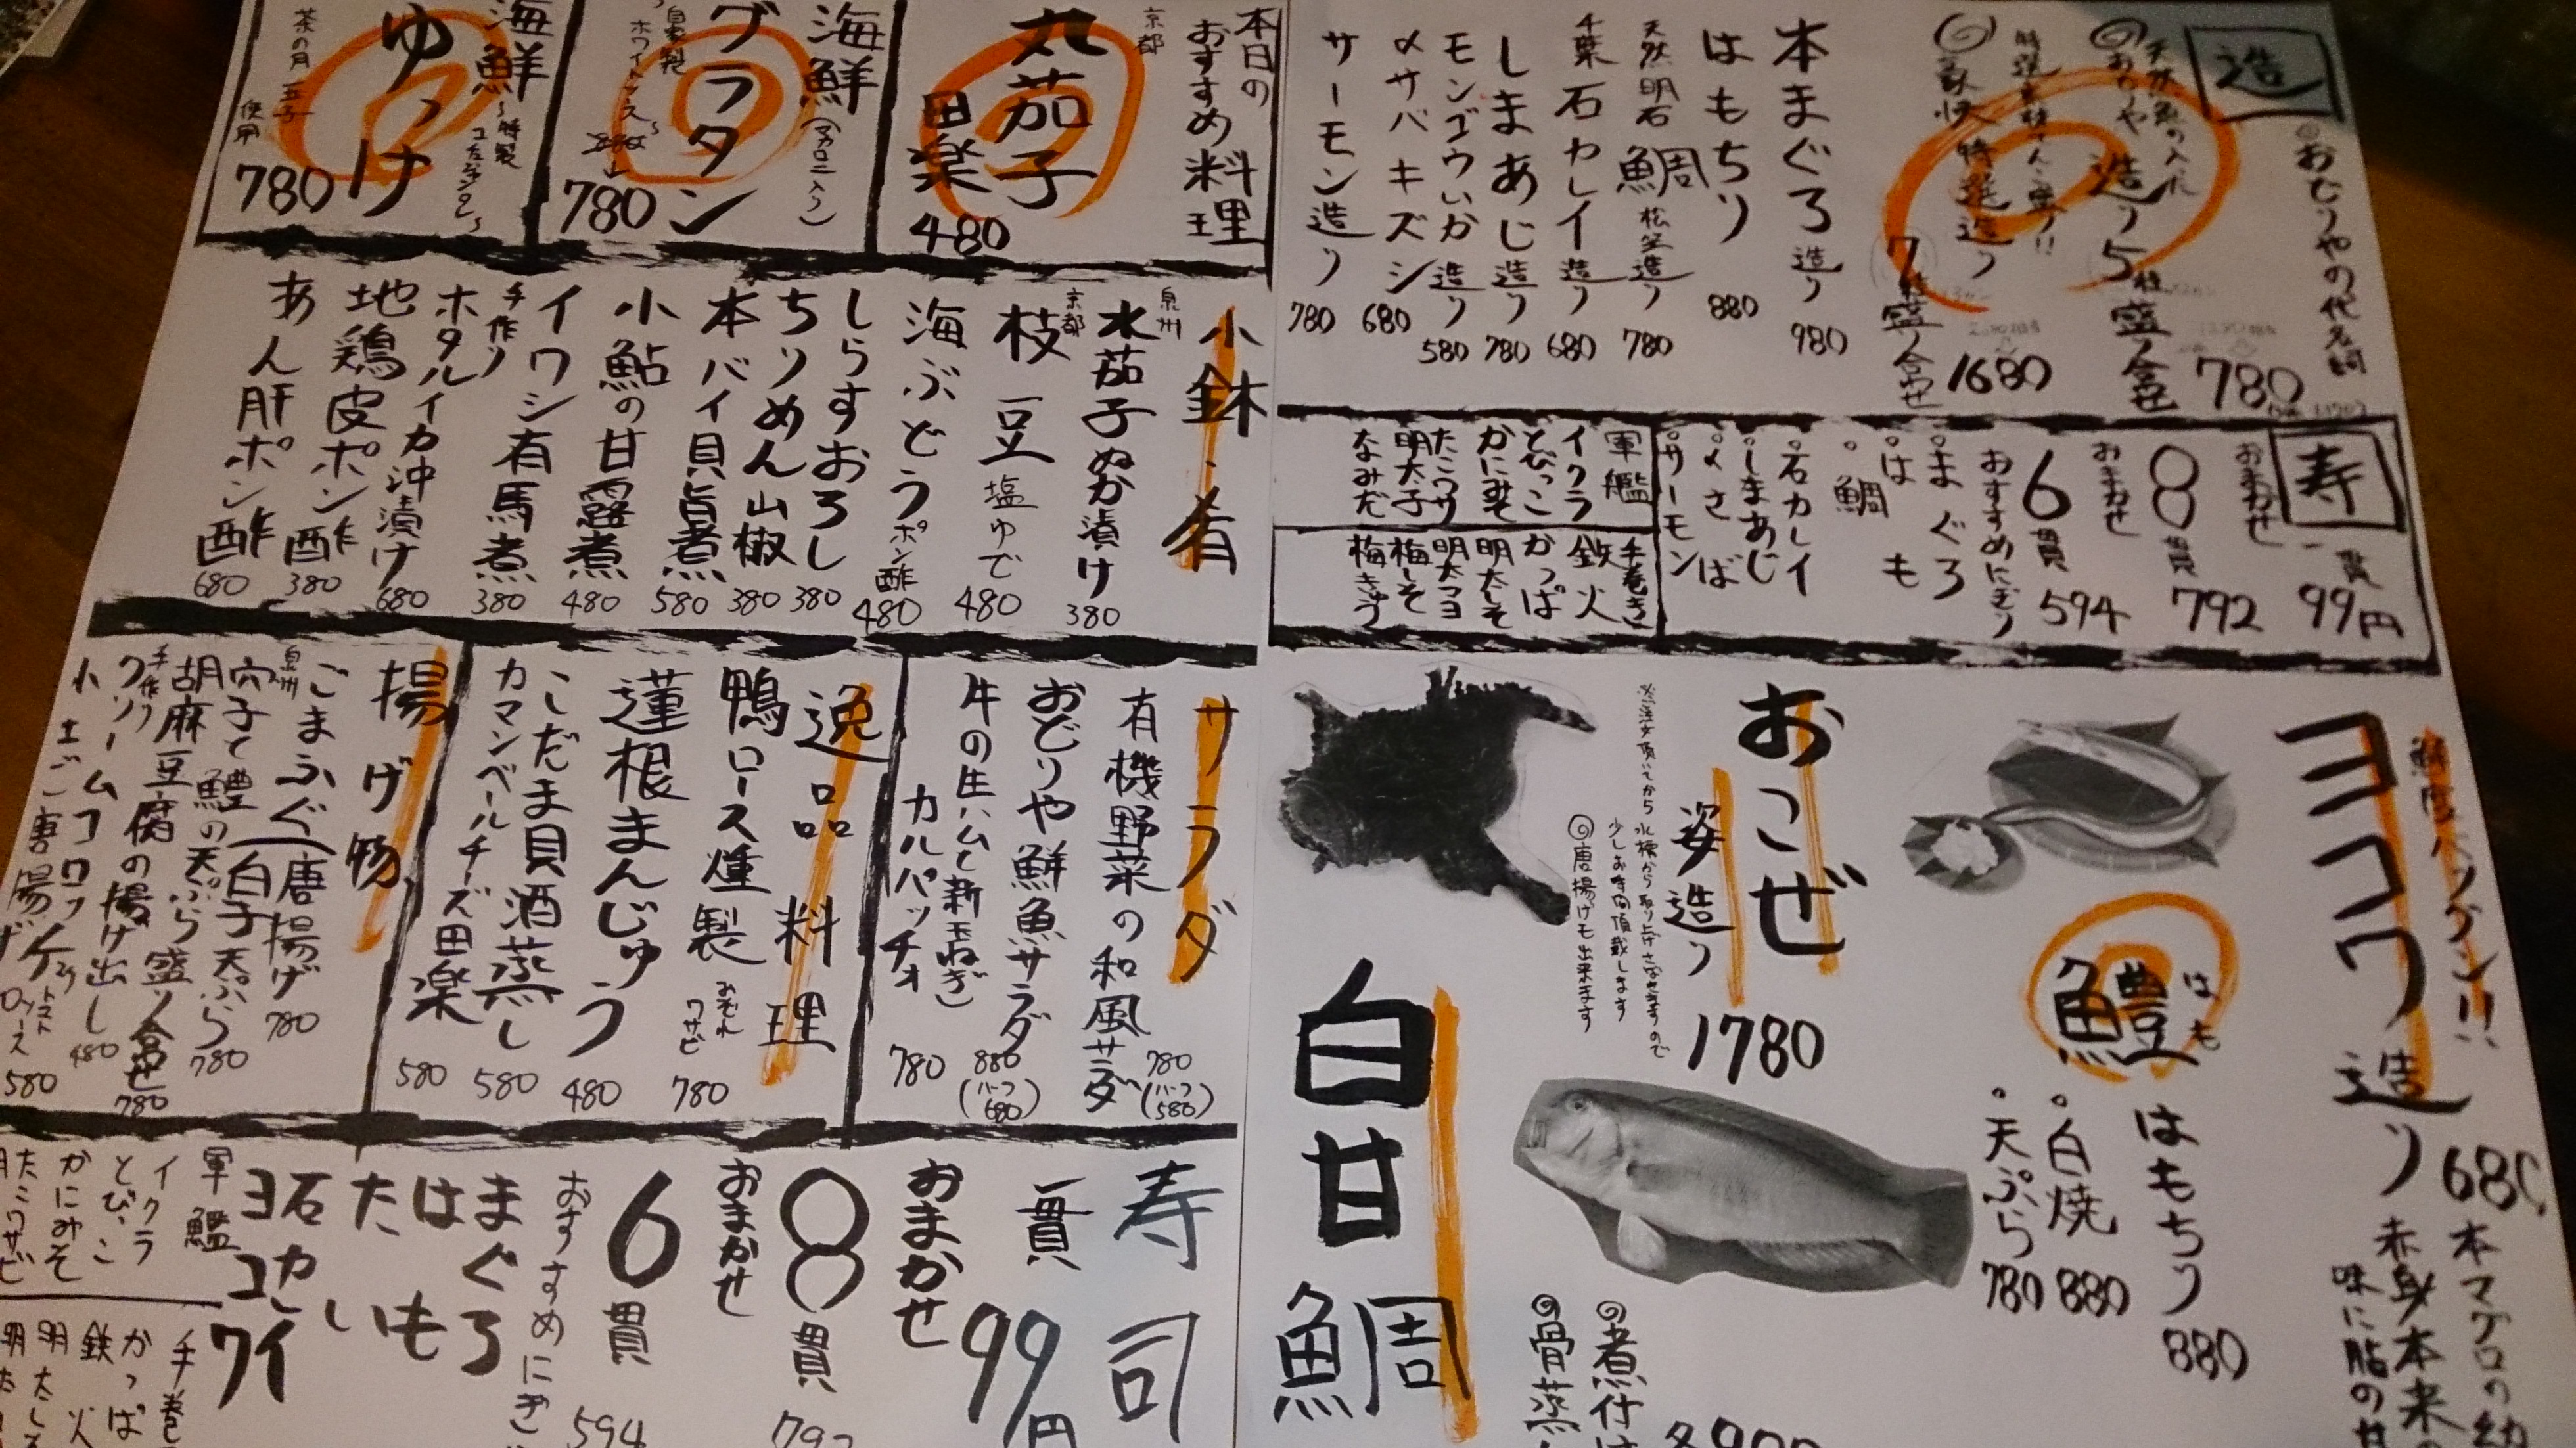 造
おどりやの代名詞
天然魚の入った
おどりや
造り5種盛り合わせ
780
豪快特選造り
7種盛り合わせ
1680
本まぐろ造り
980
はもちり
880
天然明石鯛松笠造り
780
千葉石カレイ造り
680
しまあじ造り
780
モンゴウいか造り
580
〆サバキズシ
680
サーモン造り
780
寿
一貫
99円
おまかせ
8貫
792
おまかせ
6貫
594
おすすめにぎり
まぐろ
はも
鯛
石カレイ
しまあじ
〆さば
サーモン
軍艦
イクラ
とびっこ
かにみそ
たこワサ
明太子
なみだ
手巻き
鉄火
かっぱ
明太しそ
明太マヨ
梅しそ
梅きゅう
鮮度バツグン!!
ヨコワ造り
680
本マグロの幼
赤身本来の
味に脂の甘
鱧
はも
はもちり
880
白焼
880
天ぷら
780
おこぜ
姿造り
1780
ご注文頂いてから水槽から取り上げさばきますので
少しお時間頂戴します
唐揚げも出来ます
白甘鯛
煮付け
骨蒸し
本日の
おすすめ料理
京都
丸茄子
田楽
480
海鮮(マカロニ入り)
グラタン
自家製
ホワイトソース
780
海鮮
ゆっけ
〜特製
コチュジャンダレ〜
茶の月 玉子
使用
780
小鉢・肴
泉州
水茄子ぬか漬け
380
京都
枝豆塩ゆで
480
海ぶどうポン酢
480
しらすおろし
380
ちりめん山椒
380
本バイ貝旨煮
580
小鮎の甘露煮
480
手作り
イワシ有馬煮
380
ホタルイカ沖漬け
680
地鶏皮ポン酢
380
あん肝ポン酢
680
サラダ
有機野菜の和風サラダ
780
(ハーフ580)
おどりや鮮魚サラダ
880
(ハーフ680)
牛の生ハムと新玉ねぎ
カルパッチョ
780
逸品料理
鴨ロース燻製
みぞれ
ワサビ
780
蓮根まんじゅう
480
こだま貝酒蒸し
580
カマンベールチーズ田楽
580
揚げ物
ごまふぐ(唐揚げ
白子天ぷら
780
泉州
穴子と鱧の天ぷら盛り合わせ
780
胡麻豆腐の揚げ出し
480
手作り
クリームコロッケ
トマト
ソース
580
唐揚げ
寿司
一貫
99円
おまかせ
8貫
792
おまかせ
6貫
594
おすすめにぎり
まぐろ
はも
たい
石カレイ
ヨコワ
軍艦
イクラ
とびっこ
かにみそ
たこワサビ
手巻き
かっぱ
鉄火
明太しそ